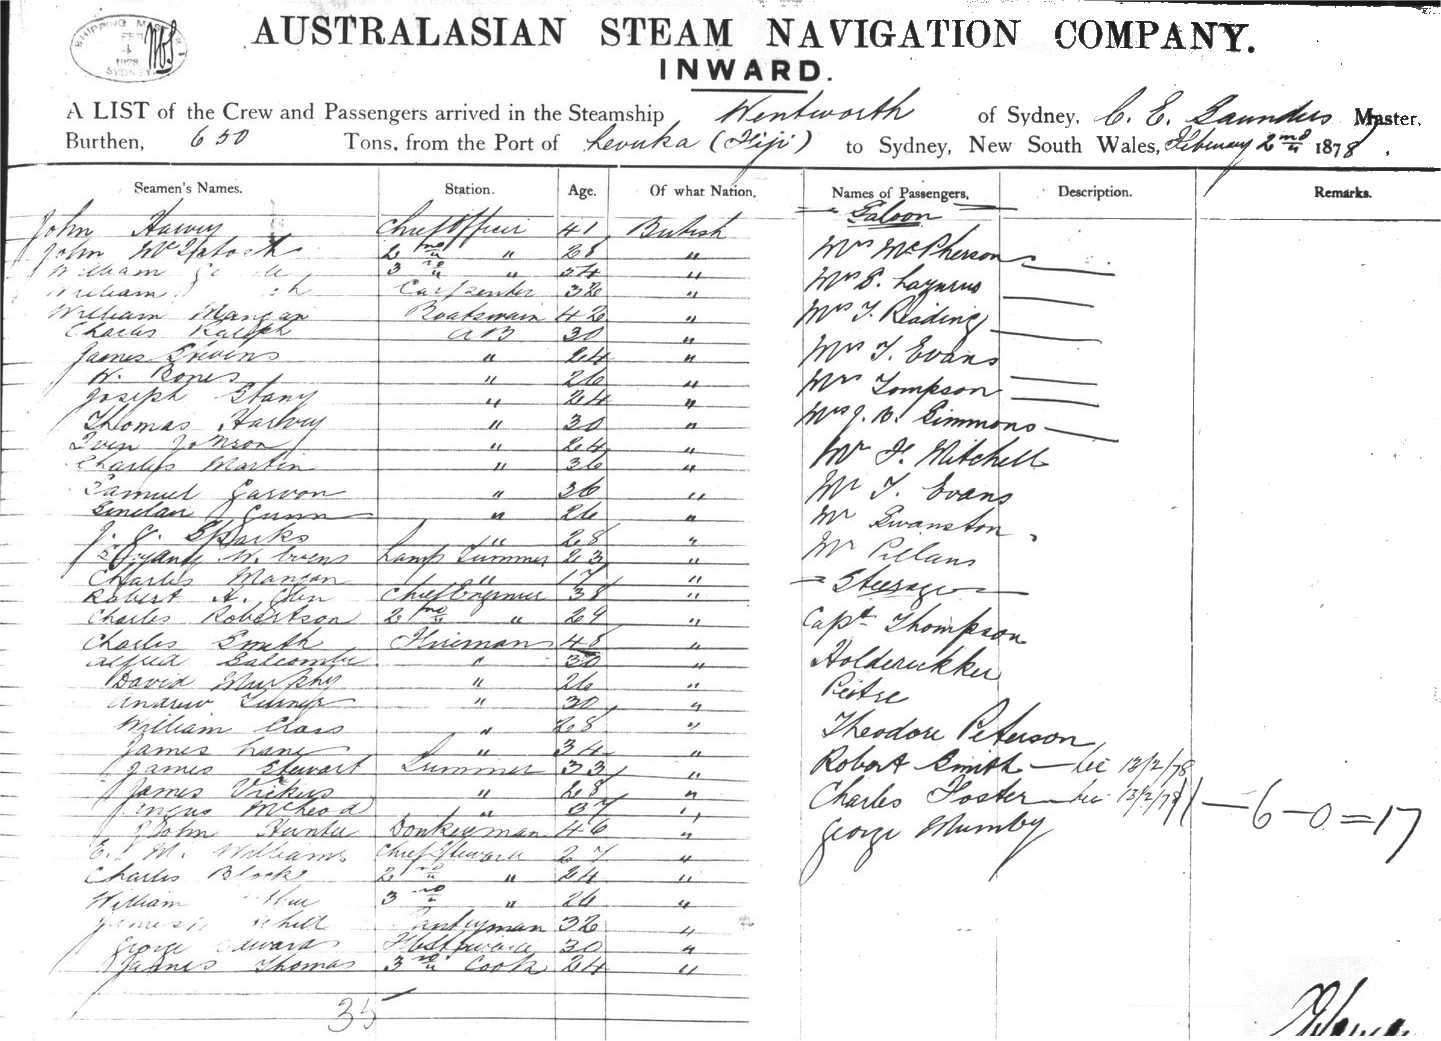 SHIPPING MAS
FEB
4
1878
SYDNEY
AUSTRALASIAN STEAM NAVIGATION COMPANY.
INWARD.
A LIST of the Crew and Passengers arrived in the Steamship Wentworth of Sydney, C. E. Saunders Master,
Burthen, 650 Tons, from the Port of Levuka (Fiji) to Sydney, New South Wales, February 2nd 1878.
Seamen's Names. Station. Age. Of what Nation.
John Harvey Chief Officer 41 British
John McIntosh 2nd " 28 "
William 3rd " 34 "
William Carpenter 32 "
William Mangan Boatswain 42 "
Charles Ralph AB 30 "
James Stevens " 24 "
W. Bones " 26 "
Joseph Stany " 24 "
Thomas Harvey " 30 "
Iven Jonson " 24 "
Charles Martin " 36 "
Samuel Garvon " 36 "
Sinclair Gunn " 26 "
J. J. Sparks " 28 "
W. Owens Lamp Trimmer 23 "
Charles Mangan " 17 "
Robert A. Glen Chief Engineer 38 "
Charles Robertson 2nd " 29 "
Charles Smith Fireman 48 "
Alfred Balcombe " 30 "
David Murphy " 26 "
Andrew Turner " 30 "
William Class " 28 "
James Lane " 34 "
James Stewart Trimmer 33 "
James Vickers " 28 "
Angus McLeod " 37 "
John Hunter Donkeyman 46 "
E. M. Williams Chief Steward 27 "
Charles Block 2nd " 24 "
William 3rd " 26 "
James Pantryman 32 "
George Edwards 30 "
James Thomas 3rd Cook 24 "
35
Names of Passengers, Description. Remarks.
Saloon
Mrs McPherson
Mrs S. Lazarus
Mrs T. Riading
Mrs T. Evans
Mrs Tompson
Mrs J. B. Simmons
Mr F. Mitchell
Mr T. Evans
Mr Swanston
Mr Pillans
Steerage
Capt Thompson
Holderukker
Peitre
Theodore Peterson
Robert Smith 13/2/78
Charles Foster 13/2/78 — 6 – 0 = 17
George Mumby